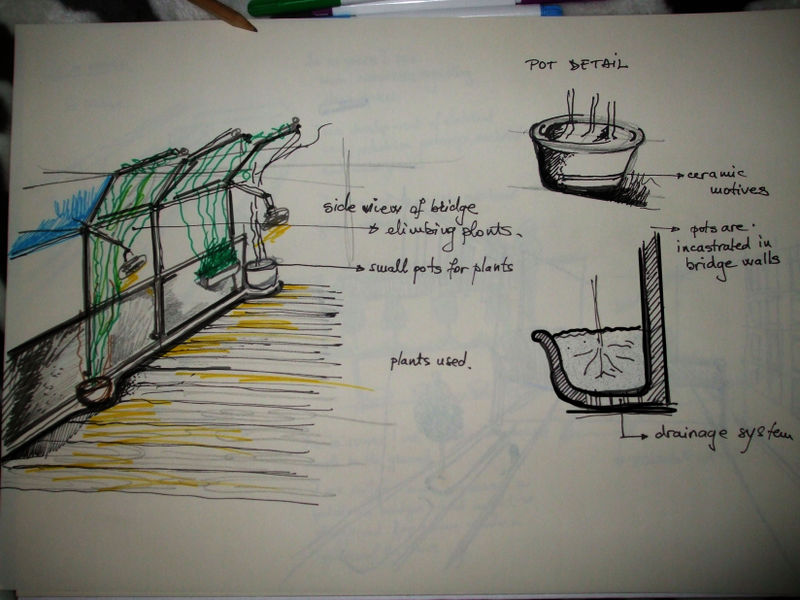 POT DETAIL
ceramic
motives
side view of bridge
climbing plants.
small pots for plants
pots are
incastrated in
bridge walls
plants used.
drainage system